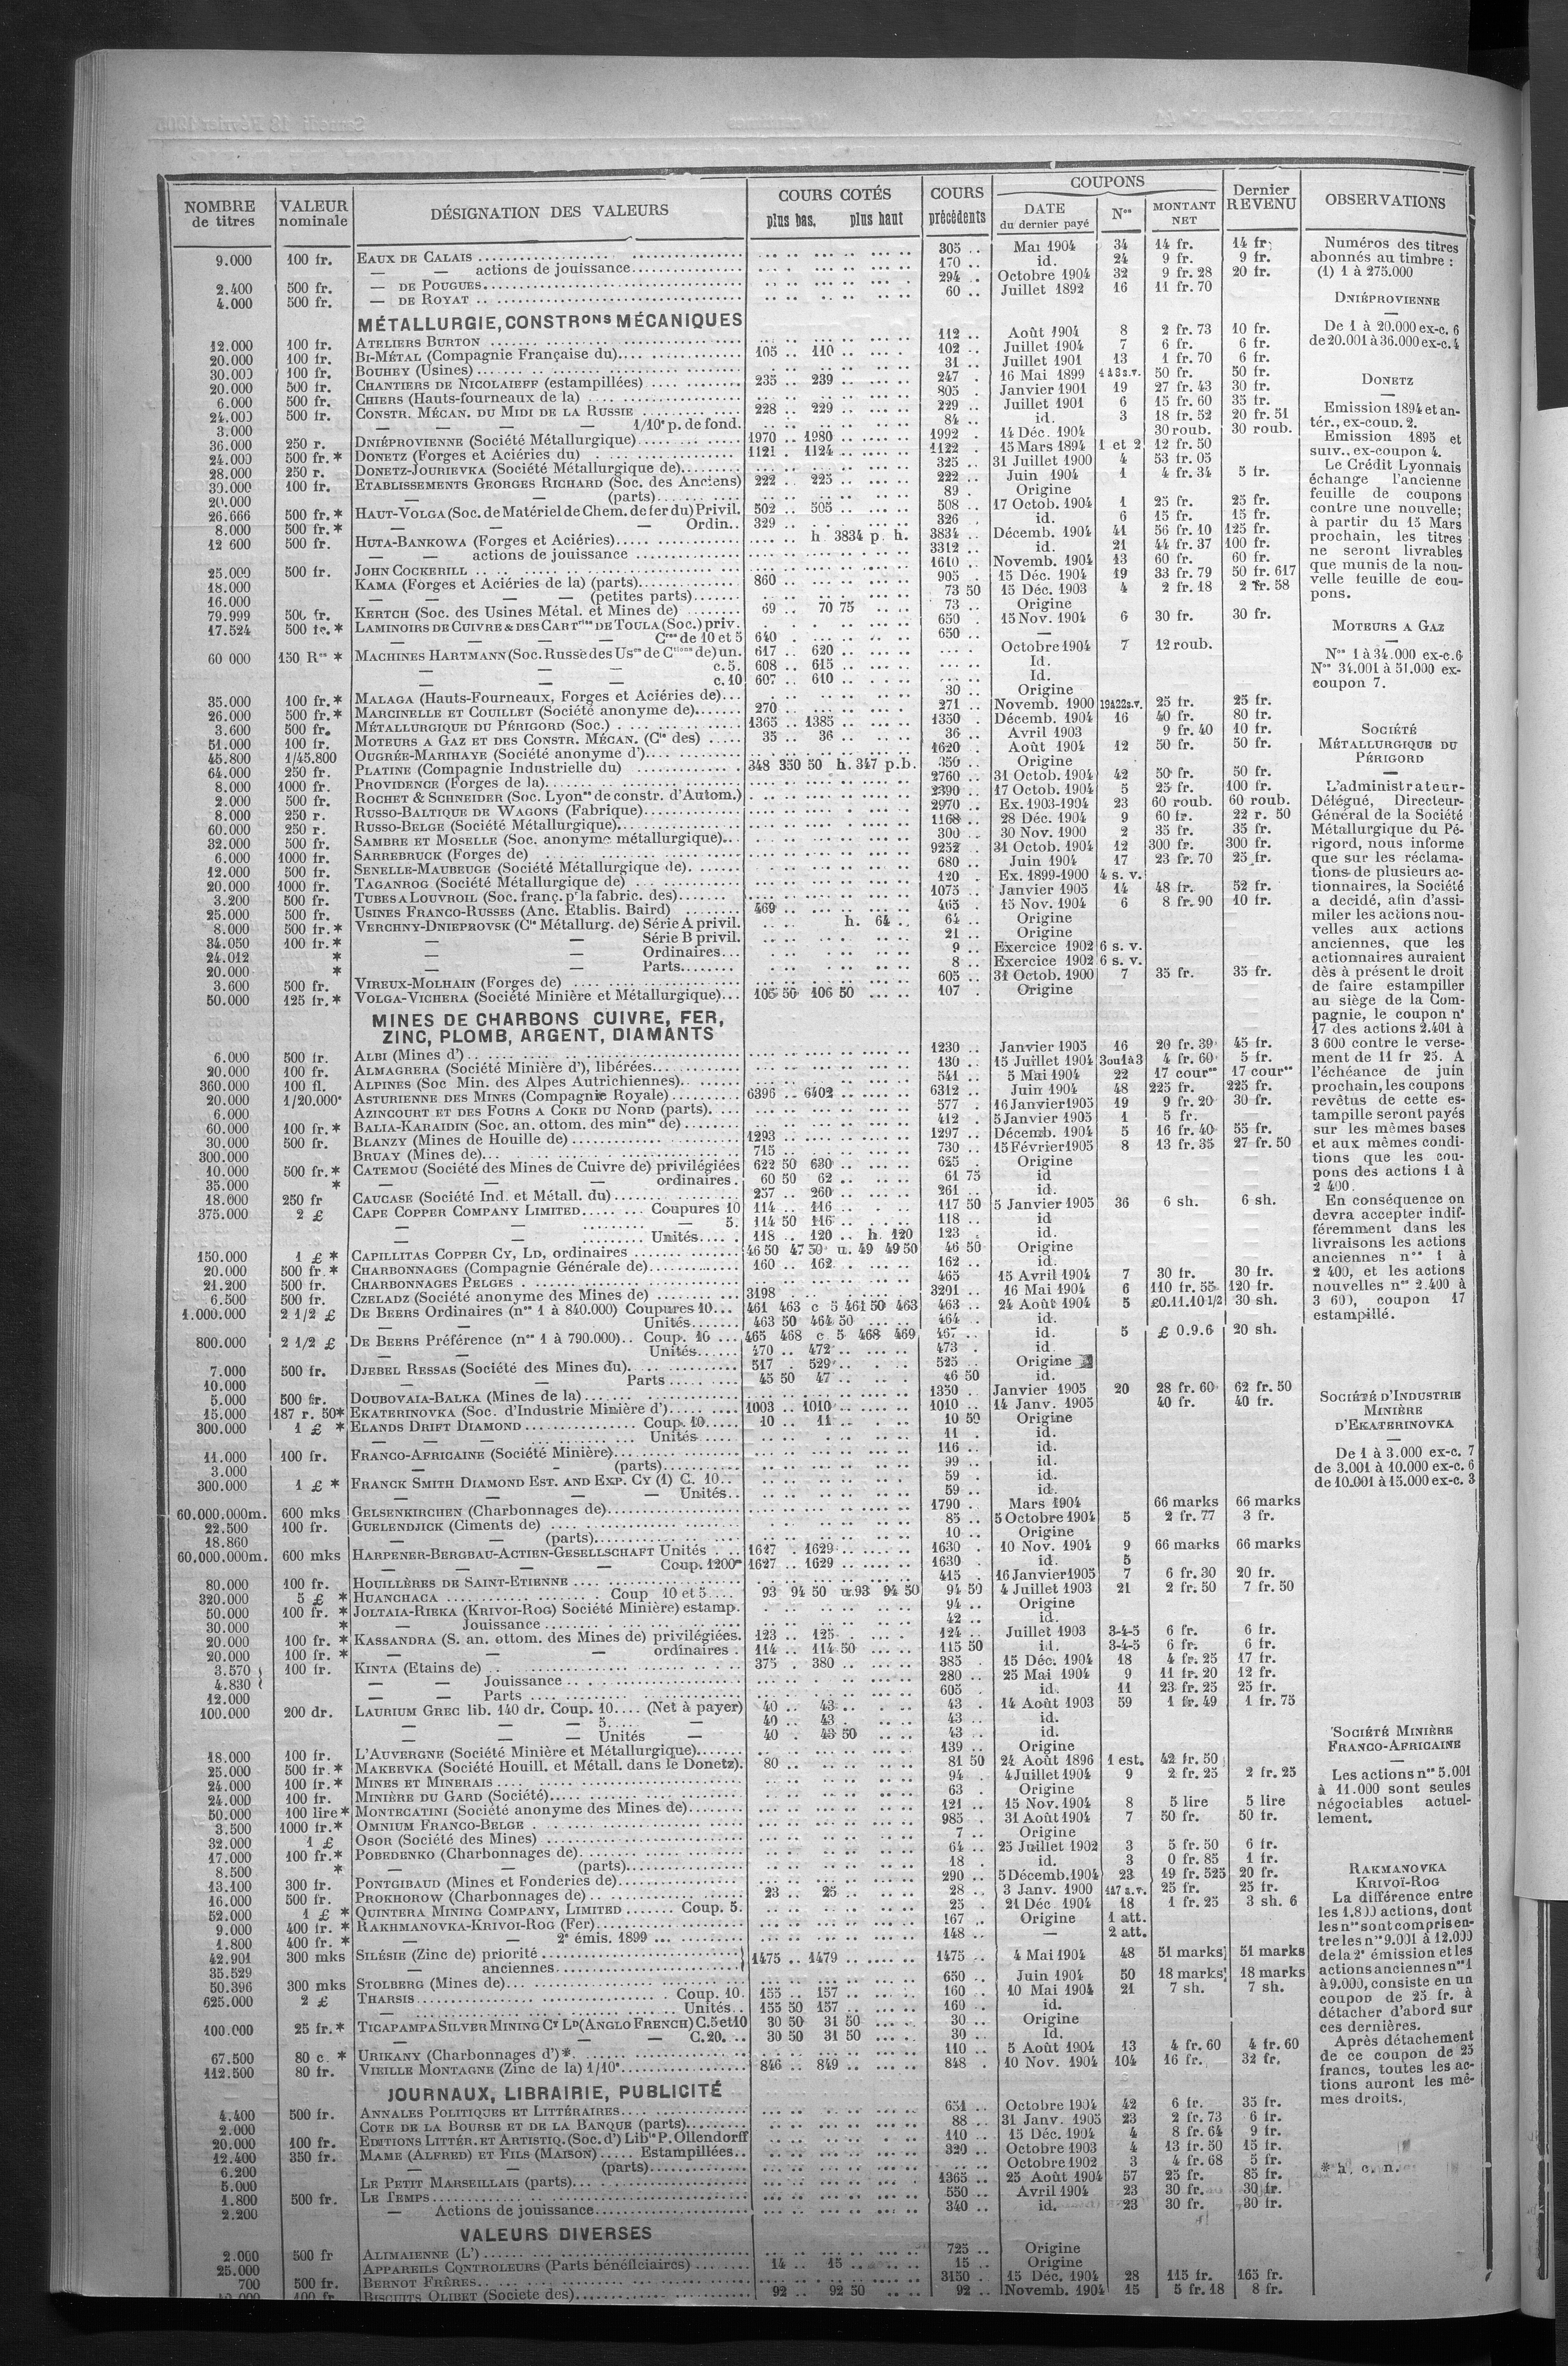 NOMBRE de titres | VALEUR nominale | DÉSIGNATION DES VALEURS | COURS COTÉS plus bas, plus haut | COURS précédents | COUPONS DATE du dernier payé | Nos | MONTANT NET | Dernier REVENU | OBSERVATIONS
9.000 100 fr. EAUX DE CALAIS 305 .. Mai 1904 34 14 fr. 14 fr.
— — actions de jouissance 170 .. id. 24 9 fr. 9 fr.
2.400 500 fr. — DE POUGUES 294 . Octobre 1904 32 9 fr. 28 20 fr.
4.000 500 fr. — DE ROYAT 60 .. Juillet 1892 16 11 fr. 70
MÉTALLURGIE, CONSTRons MÉCANIQUES
12.000 100 fr. ATELIERS BURTON 112 .. Août 1904 8 2 fr. 73 10 fr.
20.000 100 fr. BI-MÉTAL (Compagnie Française du) 105 .. 110 .. 102 .. Juillet 1904 7 6 fr. 6 fr.
30.000 100 fr. BOUHEY (Usines) 31 .. Juillet 1901 13 1 fr. 70 6 fr.
20.000 500 fr. CHANTIERS DE NICOLAIEFF (estampillées) 235 .. 239 .. 247 . 16 Mai 1899 50 fr. 50 fr.
6.000 500 fr. CHIERS (Hauts-fourneaux de la) 805 . Janvier 1901 19 27 fr. 43 30 fr.
24.000 500 fr. CONSTR. MÉCAN. DU MIDI DE LA RUSSIE 228 .. 229 .. 229 .. Juillet 1901 6 15 fr. 60 35 fr.
3.000 — — — — 1/10e p. de fond. 84 .. id. 3 18 fr. 52 20 fr. 51
36.000 250 r. DNIÉPROVIENNE (Société Métallurgique) 1970 .. 1980 .. 1992 . 14 Déc. 1904 30 roub. 30 roub.
24.000 500 fr. * DONETZ (Forges et Aciéries du) 1121 . 1124 .. 1122 .. 15 Mars 1894 1 et 2 12 fr. 50
28.000 250 r. DONETZ-JOURIEVKA (Société Métallurgique de) 325 .. 31 Juillet 1900 4 53 fr. 05
30.000 100 fr. ETABLISSEMENTS GEORGES RICHARD (Soc. des Anciens) 222 .. 225 .. 222 .. Juin 1904 1 4 fr. 34 5 fr.
20.000 — — (parts) 89 . Origine
26.666 500 fr. * HAUT-VOLGA (Soc. de Matériel de Chem. de fer du) Privil. 502 .. 505 .. 508 .. 17 Octob. 1904 1 25 fr. 25 fr.
8.000 500 fr. * — — — Ordin.. 329 .. 326 . id. 6 15 fr. 15 fr.
12 600 500 fr. HUTA-BANKOWA (Forges et Aciéries) h. 3834 p. h. 3834 .. Décemb. 1904 41 56 fr. 10 125 fr.
— — actions de jouissance 3312 .. id. 21 44 fr. 37 100 fr.
25.000 500 fr. JOHN COCKERILL 1610 .. Novemb. 1904 13 60 fr. 60 fr.
18.000 KAMA (Forges et Aciéries de la) (parts) 860 .. 905 . 15 Déc. 1904 19 33 fr. 79 50 fr. 617
16.000 — — — — (petites parts) 73 50 15 Déc. 1903 4 2 fr. 18 2 fr. 58
79.999 500 fr. KERTCH (Soc. des Usines Métal. et Mines de) 69 .. 70 75 73 .. Origine
17.524 500 fr. * LAMINOIRS DE CUIVRE & DES CARTries DE TOULA (Soc.) priv. 650 .. 15 Nov. 1904 6 30 fr. 30 fr.
— — — — Cres de 10 et 5 640 . 650 .. —
60 000 150 Res * MACHINES HARTMANN (Soc. Russe des Uses de Ctions de) un. 617 .. 620 .. Octobre 1904 7 12 roub.
— — — c. 5. 608 .. 615 .. Id.
— — — c. 10 607 .. 610 .. Id.
35.000 100 fr. * MALAGA (Hauts-Fourneaux, Forges et Aciéries de) 30 .. Origine
26.000 500 fr. * MARCINELLE ET COUILLET (Société anonyme de) 270 .. 271 .. Novemb. 1900 19à22s.v. 25 fr. 25 fr.
3.600 500 fr. MÉTALLURGIQUE DU PÉRIGORD (Soc.) 1365 .. 1385 .. 1350 . Décemb. 1904 16 40 fr. 80 fr.
51.000 100 fr. MOTEURS A GAZ ET DES CONSTR. MÉCAN. (Cie des) 35 .. 36 .. 36 .. Avril 1903 9 fr. 40 10 fr.
45.800 1/45.800 OUGRÉE-MARIHAYE (Société anonyme d') 1620 .. Août 1904 12 50 fr. 50 fr.
64.000 250 fr. PLATINE (Compagnie Industrielle du) 348 350 50 h. 347 p.b. 350 .. Origine
8.000 1000 fr. PROVIDENCE (Forges de la) 2760 .. 31 Octob. 1904 42 50 fr. 50 fr.
2.000 500 fr. ROCHET & SCHNEIDER (Soc. Lyonse de constr. d'Autom.) 2390 .. 17 Octob. 1904 5 25 fr. 100 fr.
8.000 250 r. RUSSO-BALTIQUE DE WAGONS (Fabrique) 2970 .. Ex. 1903-1904 23 60 roub. 60 roub.
60.000 250 r. RUSSO-BELGE (Société Métallurgique) 1168 .. 28 Déc. 1904 9 60 fr. 22 r. 50
32.000 500 fr. SAMBRE ET MOSELLE (Soc. anonyme métallurgique) 300 .. 30 Nov. 1900 2 35 fr. 35 fr.
6.000 1000 fr. SARREBRUCK (Forges de) 9252 .. 31 Octob. 1904 12 300 fr. 300 fr.
12.000 500 fr. SENELLE-MAUBEUGE (Société Métallurgique de) 680 .. Juin 1904 17 23 fr. 70 25 fr.
20.000 1000 fr. TAGANROG (Société Métallurgique de) 120 .. Ex. 1899-1900 4 s. v.
3.200 500 fr. TUBES A LOUVROIL (Soc. franç. pr la fabric. des) 1075 .. Janvier 1905 14 48 fr. 52 fr.
25.000 500 fr. USINES FRANCO-RUSSES (Anc. Etablis. Baird) 469 .. 465 .. 15 Nov. 1904 6 8 fr. 90 10 fr.
8.000 500 fr. * VERCHNY-DNIEPROVSK (Cie Métallurg. de) Série A privil. h. 64 .. 64 .. Origine
34.050 100 fr. * — — Série B privil. 21 .. Origine
24.012 * — — Ordinaires 9 .. Exercice 1902 6 s. v.
20.000 * — — Parts 8 .. Exercice 1902 6 s. v.
3.600 500 fr. VIREUX-MOLHAIN (Forges de) 605 .. 31 Octob. 1900 7 35 fr. 35 fr.
50.000 125 fr. * VOLGA-VICHERA (Société Minière et Métallurgique) 105 50 106 50 107 . Origine
MINES DE CHARBONS CUIVRE, FER,
ZINC, PLOMB, ARGENT, DIAMANTS
6.000 500 fr. ALBI (Mines d') 1230 .. Janvier 1905 16 20 fr. 39 45 fr.
20.000 100 fr. ALMAGRERA (Société Minière d'), libérées 130 .. 15 Juillet 1904 3ou1à3 4 fr. 60 5 fr.
360.000 100 fl. ALPINES (Soc Min. des Alpes Autrichiennes) 541 .. 5 Mai 1904 22 17 cources 17 cources
20.000 1/20.000e ASTURIENNE DES MINES (Compagnie Royale) 6396 .. 6402 .. 6312 .. Juin 1904 48 225 fr. 225 fr.
6.000 AZINCOURT ET DES FOURS A COKE DU NORD (parts) 577 . 16 Janvier 1905 19 9 fr. 20 30 fr.
60.000 100 fr. * BALIA-KARAIDIN (Soc. an. ottom. des mines de) 412 . 5 Janvier 1905 1 5 fr.
30.000 500 fr. BLANZY (Mines de Houille de) 1293 .. 1297 .. Décemb. 1904 5 16 fr. 40 55 fr.
300.000 BRUAY (Mines de) 715 .. 730 .. 15 Février 1905 8 13 fr. 35 27 fr. 50
10.000 500 fr. * CATEMOU (Société des Mines de Cuivre de) privilégiées 622 50 630 .. 625 . Origine
35.000 * — — ordinaires. 60 50 62 .. 61 75 id
18.000 250 fr CAUCASE (Société Ind. et Métall. du) 257 .. 260 .. 261 .. id.
375.000 2 £ CAPE COPPER COMPANY LIMITED Coupures 10 114 .. 116 .. 117 50 5 Janvier 1905 36 6 sh. 6 sh.
— — — 5. 114 50 116 .. 118 .. id
— — Unités 118 .. 120 .. h. 120 123 . id.
150.000 1 £ * CAPILLITAS COPPER CY, LD, ordinaires 46 50 47 50 u. 49 49 50 46 50 Origine
20.000 500 fr. * CHARBONNAGES (Compagnie Générale de) 160 .. 162 .. 162 .. id.
21.200 500 fr. CHARBONNAGES BELGES 465 15 Avril 1904 7 30 fr. 30 fr.
6.500 500 fr. CZELADZ (Société anonyme des Mines de) 3198 . 3201 .. 16 Mai 1904 6 110 fr. 55 120 fr.
1.000.000 2 1/2 £ DE BEERS Ordinaires (nos 1 à 840.000) Coupures 10 461 463 c 5 461 50 463 463 .. 24 Août 1904 5 £0.11.10 1/2 30 sh.
— — Unités 463 50 464 50 464 .. id.
800.000 2 1/2 £ DE BEERS Préférence (nos 1 à 790.000) Coup. 10 465 468 c. 5 468 469 467 .. id. 5 £ 0.9.6 20 sh.
— — Unités 470 .. 472 .. 473 . id.
7.000 500 fr. DJEBEL RESSAS (Société des Mines du) 517 . 529 .. 525 .. Origine
10.000 — — Parts 45 50 47 .. 46 50 id.
5.000 500 fr. DOUBOVAIA-BALKA (Mines de la) 1350 .. Janvier 1905 20 28 fr. 60 62 fr. 50
15.000 187 r. 50* EKATERINOVKA (Soc. d'Industrie Minière d') 1003 .. 1010 .. 1010 .. 14 Janv. 1905 40 fr. 40 fr.
300.000 1 £ * ELANDS DRIFT DIAMOND Coup. 10 10 .. 11 .. 10 50 Origine
— — — Unités 11 . id.
11.000 100 fr. FRANCO-AFRICAINE (Société Minière) 116 .. id.
3.000 — — (parts) 99 .. id.
300.000 1 £ * FRANCK SMITH DIAMOND EST. AND EXP. CY (1) C. 10 59 . id.
— — — — Unités 59 .. id.
60.000.000m. 600 mks GELSENKIRCHEN (Charbonnages de) 1790 . Mars 1904 66 marks 66 marks
22.500 100 fr. GUELENDJICK (Ciments de) 85 .. 5 Octobre 1904 5 2 fr. 77 3 fr.
18.860 — — (parts) 10 .. Origine
60.000.000m. 600 mks HARPENER-BERGBAU-ACTIEN-GESELLSCHAFT Unités 1627 . 1629 .. 1630 . 10 Nov. 1904 9 66 marks 66 marks
— — — — Coup. 1200m 1627 .. 1629 .. 1630 . id. 5
80.000 100 fr. HOUILLÈRES DE SAINT-ETIENNE 415 . 16 Janvier 1905 7 6 fr. 30 20 fr.
320.000 5 £ * HUANCHACA Coup 10 et 5 93 94 50 u.93 94 50 94 50 4 Juillet 1903 21 2 fr. 50 7 fr. 50
50.000 100 fr. * JOLTAIA-RIEKA (KRIVOI-ROG) Société Minière) estamp. 94 .. Origine
30.000 * — Jouissance 42 .. id.
20.000 100 fr. * KASSANDRA (S. an. ottom. des Mines de) privilégiées. 123 .. 125 . 124 .. Juillet 1903 3-4-5 6 fr. 6 fr.
20.000 100 fr. * — — — ordinaires . 114 .. 114 50 115 50 id. 3-4-5 6 fr. 6 fr.
3.570 100 fr. KINTA (Etains de) 375 . 380 .. 385 . 15 Déc. 1904 18 4 fr. 25 17 fr.
4.830 — — Jouissance 280 .. 25 Mai 1904 9 11 fr. 20 12 fr.
12.000 — — Parts 605 . id. 11 23 fr. 25 25 fr.
100.000 200 dr. LAURIUM GREC lib. 140 dr. Coup. 10 (Net à payer) 40 .. 43 .. 43 . 14 Août 1903 59 1 fr. 49 1 fr. 75
— — — 5 — 40 .. 43 . 43 .. id.
— — — Unités — 40 . 43 50 43 .. id.
18.000 100 fr. L'AUVERGNE (Société Minière et Métallurgique) 139 .. Origine
25.000 500 fr. * MAKEEVKA (Société Houill. et Métall. dans le Donetz). 80 .. 81 50 24 Août 1896 1 est. 42 fr. 50
24.000 100 fr. * MINES ET MINERAIS 94 . 4 Juillet 1904 9 2 fr. 25 2 fr. 25
24.000 100 fr. MINIÈRE DU GARD (Société) 63 . Origine
50.000 100 lire * MONTECATINI (Société anonyme des Mines de) 121 .. 15 Nov. 1904 8 5 lire 5 lire
3.500 1000 fr. * OMNIUM FRANCO-BELGE 985 . 31 Août 1904 7 50 fr. 50 fr.
32.000 1 £ OSOR (Société des Mines) 7 .. Origine
17.000 100 fr. * POBEDENKO (Charbonnages de) 64 .. 25 Juillet 1902 3 5 fr. 50 6 fr.
8.500 * — — (parts) 18 . id. 3 0 fr. 85 1 fr.
13.100 300 fr. PONTGIBAUD (Mines et Fonderies de) 290 .. 5 Décemb. 1904 23 19 fr. 525 20 fr.
16.000 500 fr. PROKHOROW (Charbonnages de) 23 .. 25 .. 28 .. 3 Janv. 1900 25 fr. 25 fr.
52.000 1 £ * QUINTERA MINING COMPANY, LIMITED Coup. 5. 25 . 21 Déc. 1904 18 1 fr. 25 3 sh. 6
9.000 400 fr. * RAKHMANOVKA-KRIVOI-ROG (Fer) 167 .. Origine 1 att.
1.800 400 fr. * — — 2e émis. 1899 148 .. — 2 att.
42.901 300 mks SILÉSIE (Zinc de) priorité 1475 .. 1479 .. 1475 .. 4 Mai 1904 48 51 marks 51 marks
35.529 — anciennes
50.396 300 mks STOLBERG (Mines de) 650 .. Juin 1904 50 18 marks 18 marks
625.000 2 £ THARSIS Coup. 10. 155 .. 157 .. 160 . 10 Mai 1904 21 7 sh. 7 sh.
— Unités 155 50 157 .. 160 .. id.
100.000 25 fr. * TICAPAMPA SILVER MINING CY LD (ANGLO FRENCH) C. 5 et 10 30 50 31 50 30 .. Origine
— — — C. 20. 30 50 31 50 30 .. Id.
67.500 80 c. * URIKANY (Charbonnages d') * 110 .. 5 Août 1904 13 4 fr. 60 4 fr. 60
112.500 80 fr. VIEILLE MONTAGNE (Zinc de la) 1/10e 846 .. 849 .. 848 . 10 Nov. 1904 104 16 fr. 32 fr.
JOURNAUX, LIBRAIRIE, PUBLICITÉ
4.400 500 fr. ANNALES POLITIQUES ET LITTÉRAIRES 651 . Octobre 1904 42 6 fr. 35 fr.
2.000 COTE DE LA BOURSE ET DE LA BANQUE (parts) 88 .. 31 Janv. 1905 23 2 fr. 73 6 fr.
20.000 100 fr. EDITIONS LITTÉR. ET ARTISTIQ. (Soc. d') Libie P. Ollendorff 110 .. 15 Déc. 1904 4 8 fr. 64 9 fr.
12.400 350 fr. MAME (ALFRED) ET FILS (MAISON) Estampillées 320 .. Octobre 1903 4 13 fr. 50 15 fr.
6.200 — — (parts) Octobre 1902 3 4 fr. 68 5 fr.
5.000 LE PETIT MARSEILLAIS (parts) 1365 .. 25 Août 1904 57 25 fr. 85 fr.
1.800 500 fr. LE TEMPS 550 .. Avril 1904 23 30 fr. 30 fr.
2.200 — Actions de jouissance 340 .. id. 23 30 fr. 30 fr.
VALEURS DIVERSES
2.000 500 fr ALIMAIENNE (L') 725 .. Origine
25.000 APPAREILS CONTROLEURS (Parts bénéficiaires) 14 .. 15 .. 15 .. Origine
700 500 fr. BERNOT FRÈRES 3150 . 15 Déc. 1904 28 115 fr. 165 fr.
100 fr. BISCUITS OLIBET (Societe des) 92 .. 92 50 92 .. Novemb. 1904 15 5 fr. 18 8 fr.
Numéros des titres
abonnés au timbre :
(1) 1 à 275.000
DNIÉPROVIENNE
De 1 à 20.000 ex-c. 6
de 20.001 à 36.000 ex-c. 4
DONETZ
Emission 1894 et an-
tér., ex-coup. 2.
Emission 1895 et
suiv., ex-coupon 4.
Le Crédit Lyonnais
échange l'ancienne
feuille de coupons
contre une nouvelle;
à partir du 15 Mars
prochain, les titres
ne seront livrables
que munis de la nou-
velle feuille de cou-
pons.
MOTEURS A GAZ
Nos 1 à 34.000 ex-c. 6
Nos 34.001 à 51.000 ex-
coupon 7.
SOCIÉTÉ
MÉTALLURGIQUE DU
PÉRIGORD
L'administrateur-
Délégué, Directeur-
Général de la Société
Métallurgique du Pé-
rigord, nous informe
que sur les réclama-
tions de plusieurs ac-
tionnaires, la Société
a decidé, afin d'assi-
miler les actions nou-
velles aux actions
anciennes, que les
actionnaires auraient
dès à présent le droit
de faire estampiller
au siège de la Com-
pagnie, le coupon n°
17 des actions 2.401 à
3 600 contre le verse-
ment de 11 fr 25. A
l'échéance de juin
prochain, les coupons
revêtus de cette es-
tampille seront payés
sur les mêmes bases
et aux mêmes condi-
tions que les cou-
pons des actions 1 à
2 400.
En conséquence on
devra accepter indif-
féremment dans les
livraisons les actions
anciennes nos 1 à
2 400, et les actions
nouvelles nos 2.400 à
3 600, coupon 17
estampillé.
SOCIÉTÉ D'INDUSTRIE
MINIÈRE
D'EKATERINOVKA
De 1 à 3.000 ex-c. 7
de 3.001 à 10.000 ex-c. 6
de 10.001 à 15.000 ex-c. 3
SOCIÉTÉ MINIÈRE
FRANCO-AFRICAINE
Les actions nos 5.001
à 11.000 sont seules
négociables actuel-
lement.
RAKMANOVKA
KRIVOÏ-ROG
La différence entre
les 1.800 actions, dont
les nos sont compris en-
tre les nos 9.001 à 12.000
de la 2e émission et les
actions anciennes nos 1
à 9.000, consiste en un
coupon de 25 fr. à
détacher d'abord sur
ces dernières.
Après détachement
de ce coupon de 25
francs, toutes les ac-
tions auront les mê-
mes droits.
* h. c. n.